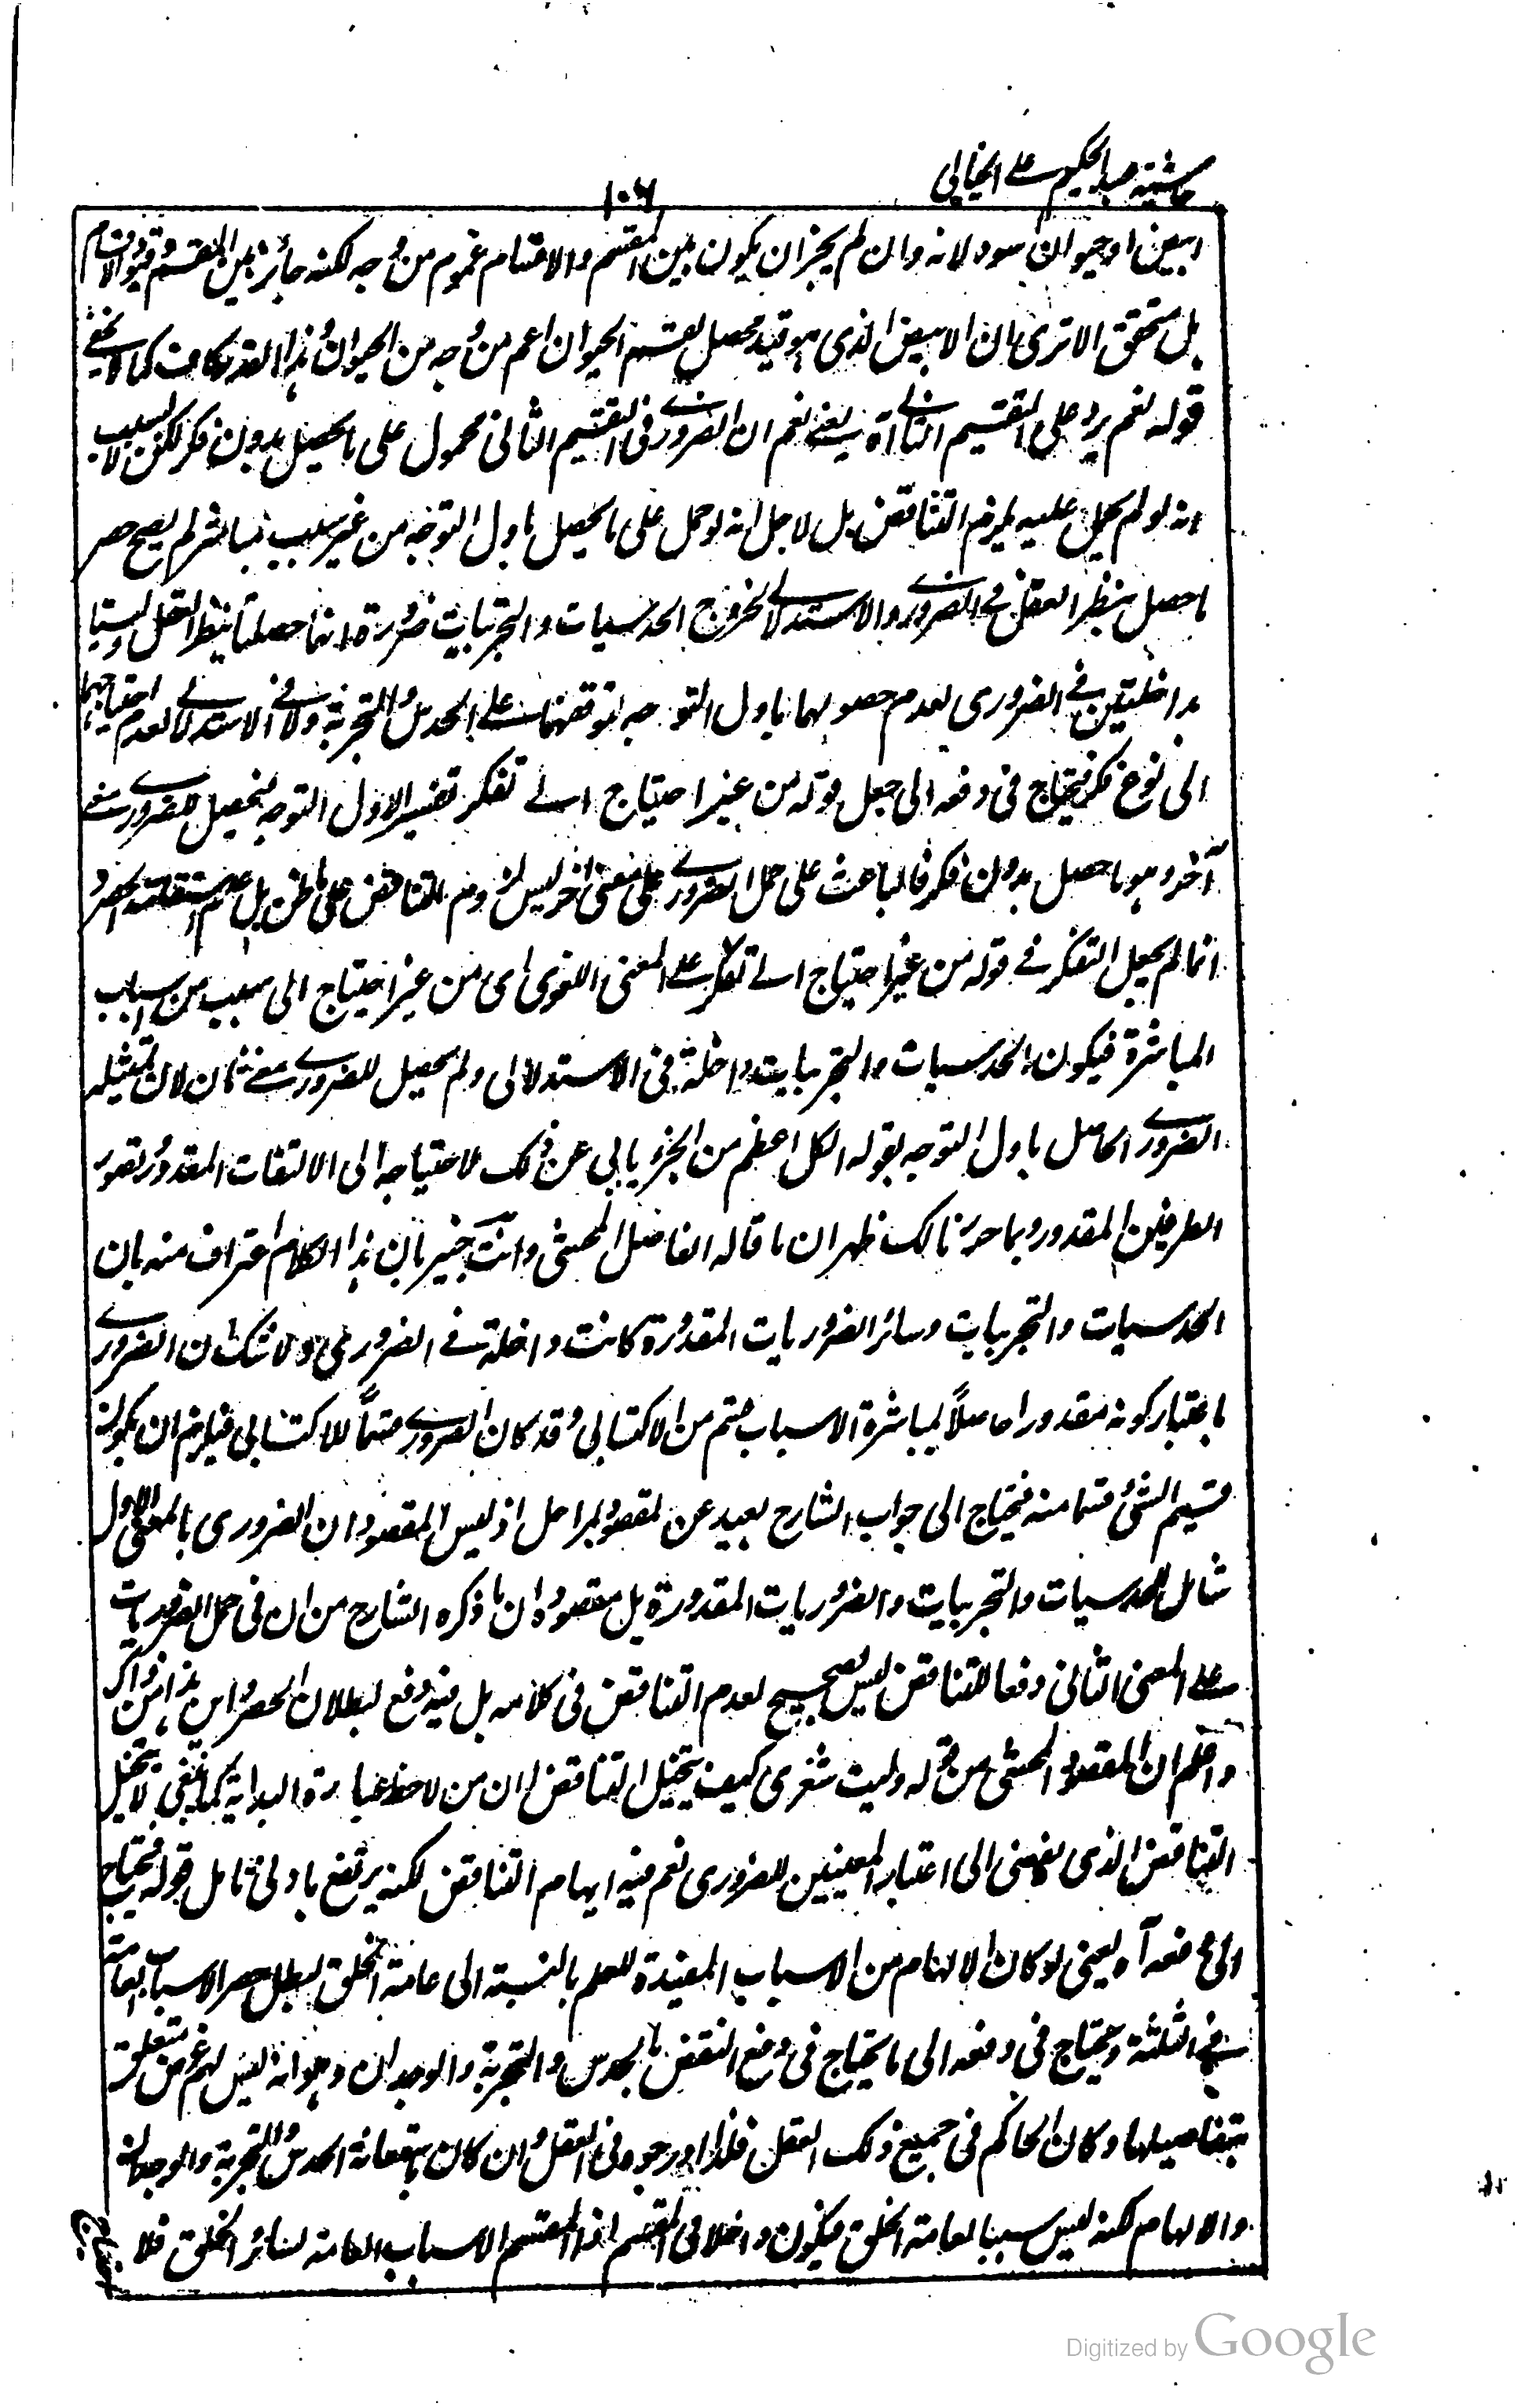 حاشیة عبد الحکیم علی الخیالی
۱۰۶
ابیض او حیوان اسود لانه وان لم یجز ان یکون بین المقسم والاقسام عموم من وجه لکنه جائز بین المقسم وقیود الاقسام
بل متحقق الا تری ان الابیض الذی هو قید محصل لقسم الحیوان اعم من وجه من الحیوان وهذا القدر کاف کما لا یخفی
قوله نعم یرد علی التقسیم الثانی آه یعنی نعم ان الضروری فی التقسیم الثانی محمول علی ما یحصل بدون فکر لکن لا بسبب
انه لو لم یحمل علیه یلزم التناقض بل لاجل انه لو حمل علی ما یحصل باول التوجه من غیر سبب مباشر لم یصح حصر
ما حصل بنظر العقل فی الضروری والاستدلالی لخروج الحدسیات والتجربیات ضرورة انها حصلتا بنظر العقل ولیستا
بداخلتین فی الضروری لعدم حصولهما باول التوجه لتوقفهما علی الحدس والتجربة ولا فی الاستدلالی لعدم احتیاجهما
الی نوع فکر فیحتاج فی دفعه الی جعل قوله من غیر احتیاج الی تفکر تفسیر الاول التوجه لیحصل للضروری معنی
آخر وهو ما حصل بدون فکر فالباعث علی حمل الضروری علی معنی آخر لیس لزوم التناقض علی ما ظن بل عدم استقامة الحصر و
انما لم یجعل التفکر فی قوله من غیر احتیاج الی تفکر علی المعنی اللغوی ای من غیر احتیاج الی سبب من اسباب
المباشرة فیکون الحدسیات والتجربیات داخلة فی الاستدلالی ولم یحصل للضروری معنی ثان لان تمثیله
الضروری الحاصل باول التوجه بقوله الکل اعظم من الجزء یابی عن ذلک لاحتیاجه الی الالتفات المقدور وتصور
الطرفین المقدور وبما حررنا لک ظهر ان ما قاله الفاضل المحشی وانت خبیر بان هذا الکلام اعتراف منه بان
الحدسیات والتجربیات وسائر الضروریات المقدورة کانت داخلة فی الضروری ولا شک ان الضروری
باعتبار کونه مقدورا حاصلاً بمباشرة الاسباب قسم من الاکتسابی وقد کان الضروری قسیماً للاکتسابی فیلزم ان یکون
قسیم الشئ قسما منه فیحتاج الی جواب الشارح بعید عن المقصود بمراحل اذ لیس المقصود ان الضروری بالمعنی الاول
شامل للحدسیات والتجربیات والضروریات المقدورة بل مقصوده ان ما ذکره الشارح من ان فی حمل الضروریات
علی المعنی الثانی دفعا للتناقض لیس بصحیح لعدم التناقض فی کلامه بل فیه دفع لبطلان الحصر واین هذا من ذاک
واعلم ان المقصود المحشی من قوله ولیت شعری کیف یتخیل التناقض ان من لاحظ عبارة البدایة کما ینبغی لا یتخیل
التناقض الذی یفضی الی اعتبار المعنیین للضروری نعم فیه ایهام التناقض لکنه یرتفع بادنی تامل قوله فیحتاج
الی دفعه آه یعنی لو کان الالهام من الاسباب المفیدة للعلم بالنسبة الی عامة الخلق لبطل حصر الاسباب العامة
فی الثلثة ویحتاج فی دفعه الی ما یحتاج فی دفع النقض بالحدس والتجربة والوجدان وهو انه لیس لهم غرض متعلق
بتفاصیلها وکان الحاکم فی جمیع ذلک العقل فلذا ادرجوه فی العقل وان کان باستعانة الحدس والتجربة والوجدان
والالهام لکنه لیس سببا لعامة الخلق فیکون داخلا فی المقسم اذ المقسم الاسباب العامة لسائر الخلق فلا
Digitized by Google